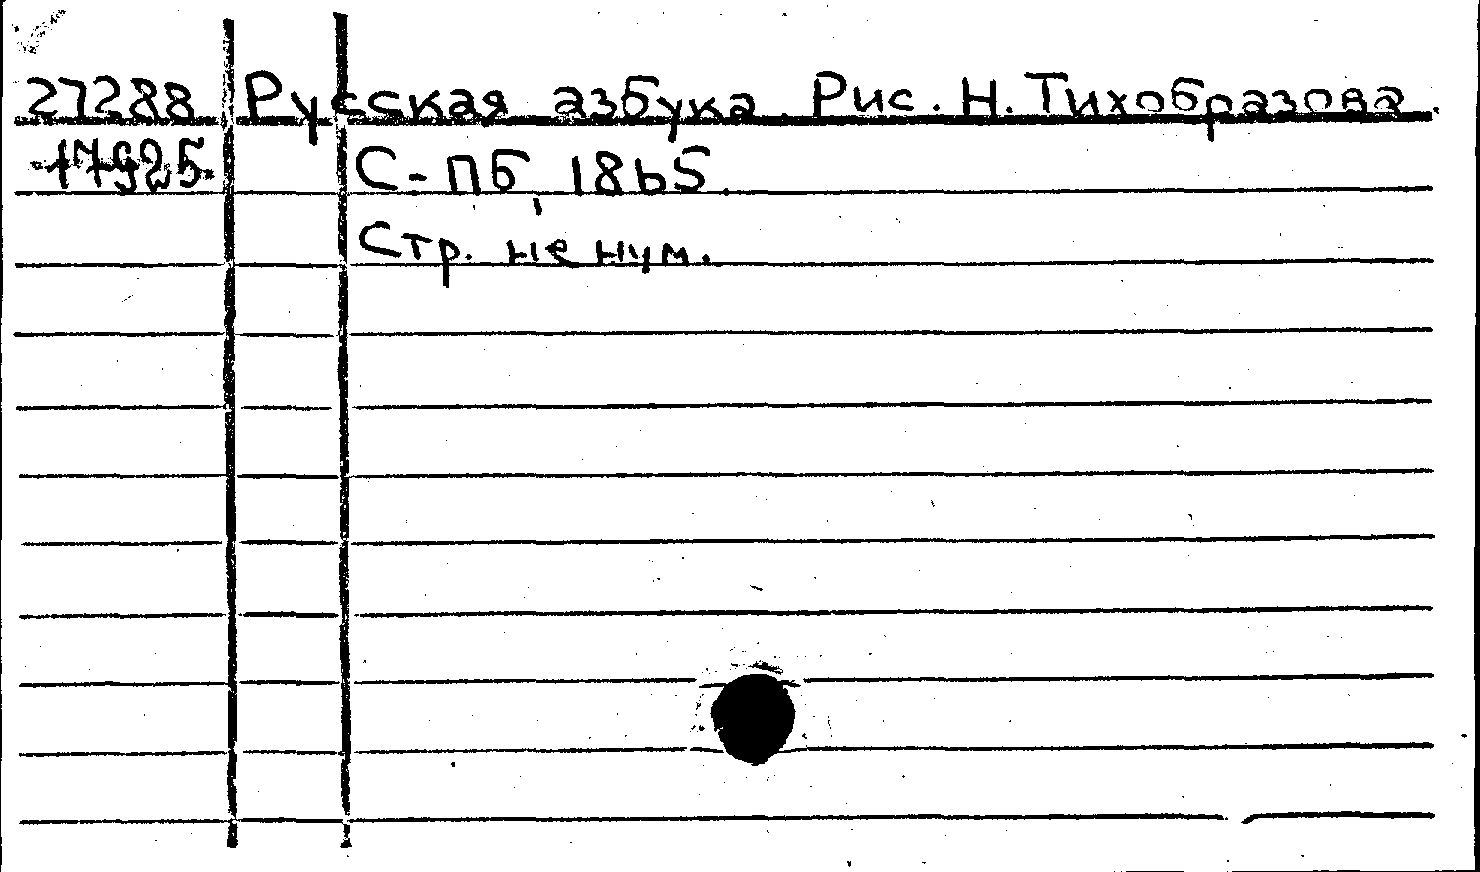 27288 Русская азбука. Рис. Н. Тихобразова.
17925. С-Пб, 1865.
Стр. не нум.